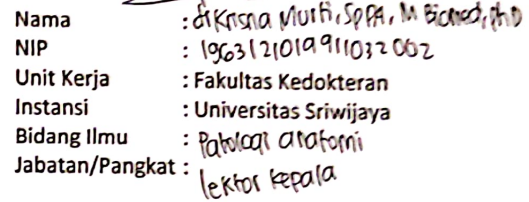 Nama : dr Krisna Murti, SpPA, M Biomed, PhD
NIP : 1963121019911032002
Unit Kerja : Fakultas Kedokteran
Instansi : Universitas Sriwijaya
Bidang Ilmu : Patologi anatomi
Jabatan/Pangkat : lektor kepala